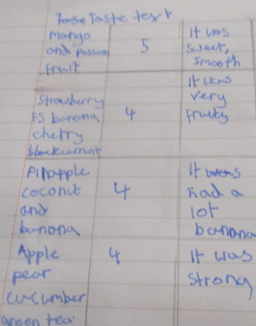 Taste test
Mango
and passion
fruit
5
It was
sweet,
smooth
Strawberry
banana
cherry
blackcurrant
4
It was
very
fruity
Pineapple
coconut
and
banana
4
It
had a
lot
banana
Apple
pear
cucumber
green tea
4
It was
strong